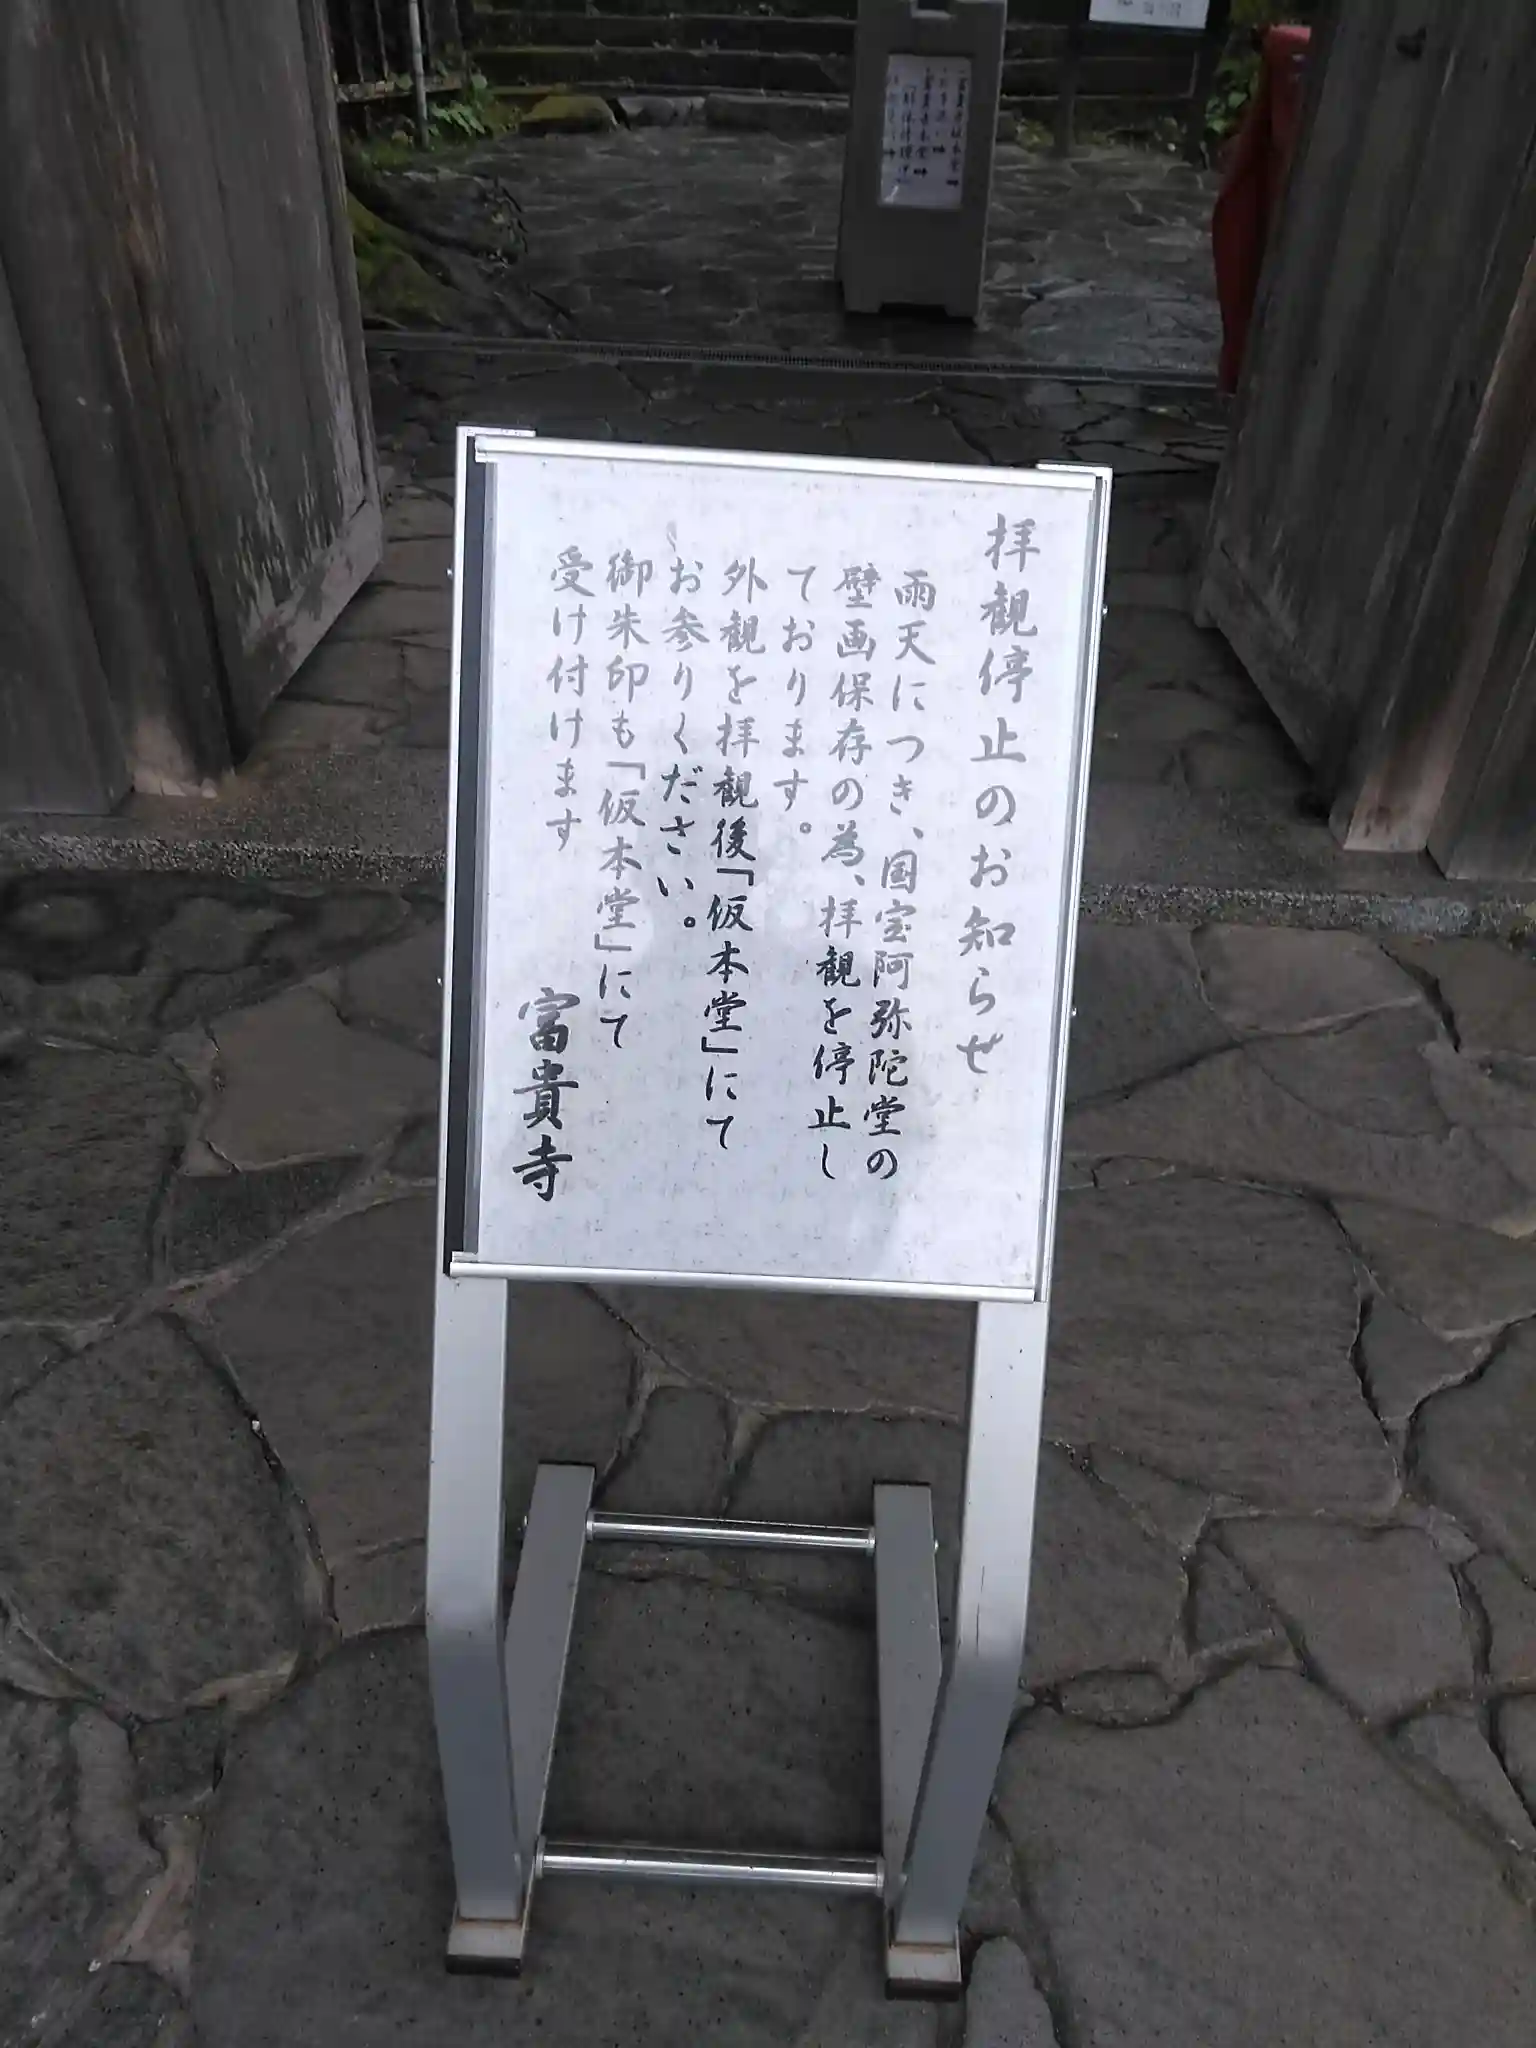 拝観停止のお知らせ
雨天につき、国宝阿弥陀堂の
壁画保存の為、拝観を停止し
ております。
外観を拝観後「仮本堂」にて
お参りください。
御朱印も「仮本堂」にて
受け付けます
富貴寺